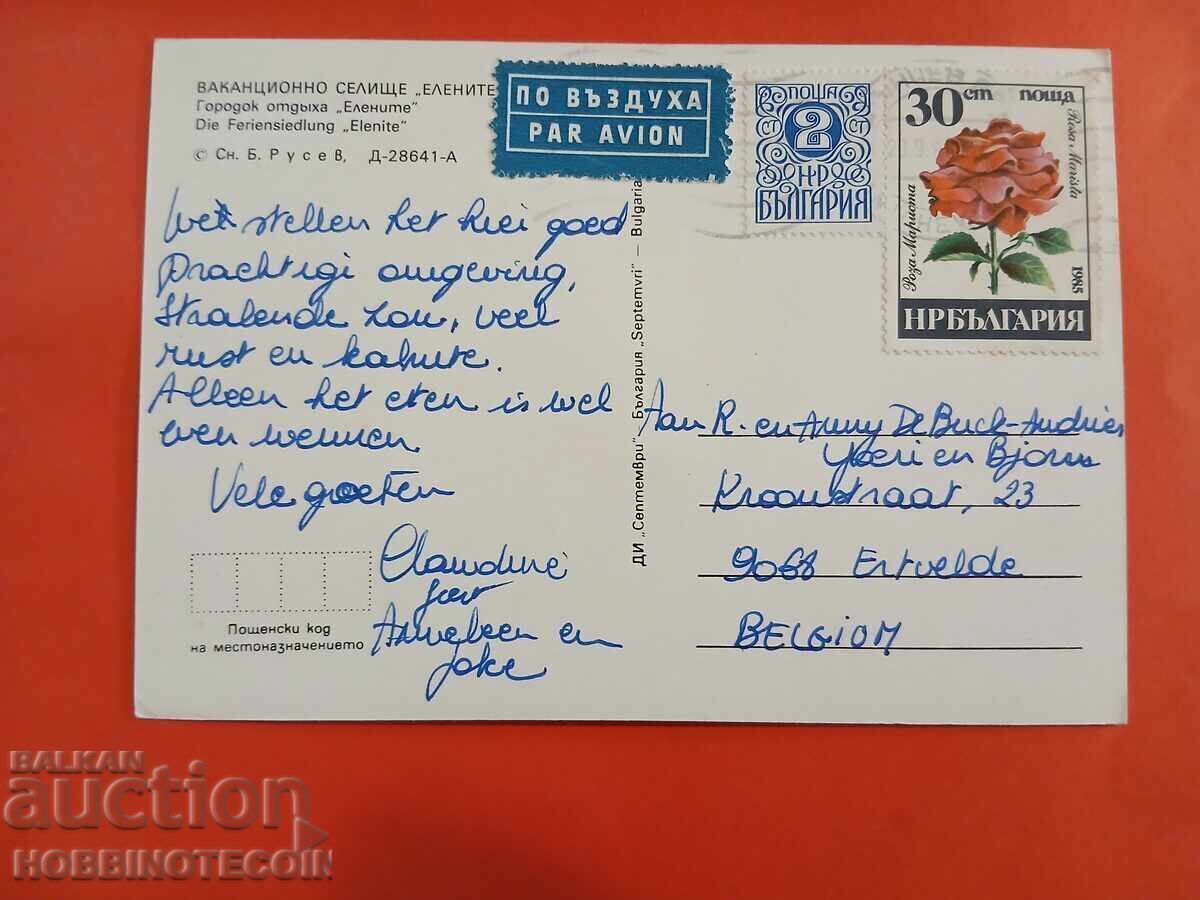 ВАКАНЦИОННО СЕЛИЩЕ „ЕЛЕНИТЕ
Городок отдыха „Елените"
Die Feriensiedlung „Elenite"
© Сн. Б. Русев, Д-28641-А
ПО ВЪЗДУХА
PAR AVION
ПОЩА
СТ 2 СТ
НР
БЪЛГАРИЯ
30 ст поща
Роза Мариста
Rosa Marista
1985
НРБЪЛГАРИЯ
stellen het hiei goed
Prachtigi omgeving,
Stralende zon, veel
rust en kalmte.
Alleen het eten is wel
even wennen
Vele groeten
Claudine
Anneleen en
Joke
Пощенски код
на местоназначението
ДИ „Септември" България „Septemvri" — Bulgaria
Aan R. en Anny De Buck-Andries
en Bjorn
Kroonstraat, 23
9068 Ertvelde
BELGIOM
BALKAN
auction
HOBBINOTECOIN